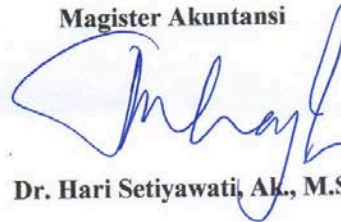 Magister Akuntansi
Dr. Hari Setiyawati, Ak., M.S